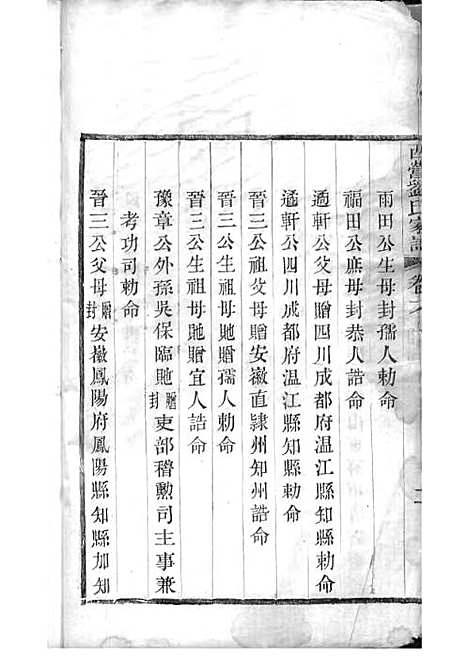 西營劉氏家譜 卷八
雨田公生母封孺人勅命
福田公庶母封恭人誥命
適軒公父母贈四川成都府温江縣知縣勅命
適軒公四川成都府温江縣知縣勅命
晉三公祖父母贈安徽直隸州知州誥命
晉三公生祖母貤贈孺人勅命
晉三公生祖母貤贈宜人誥命
豫章公外孫吳保臨貤贈封吏部稽勳司主事兼
考功司勅命
晉三公父母贈封安徽鳳陽府鳳陽縣知縣加知